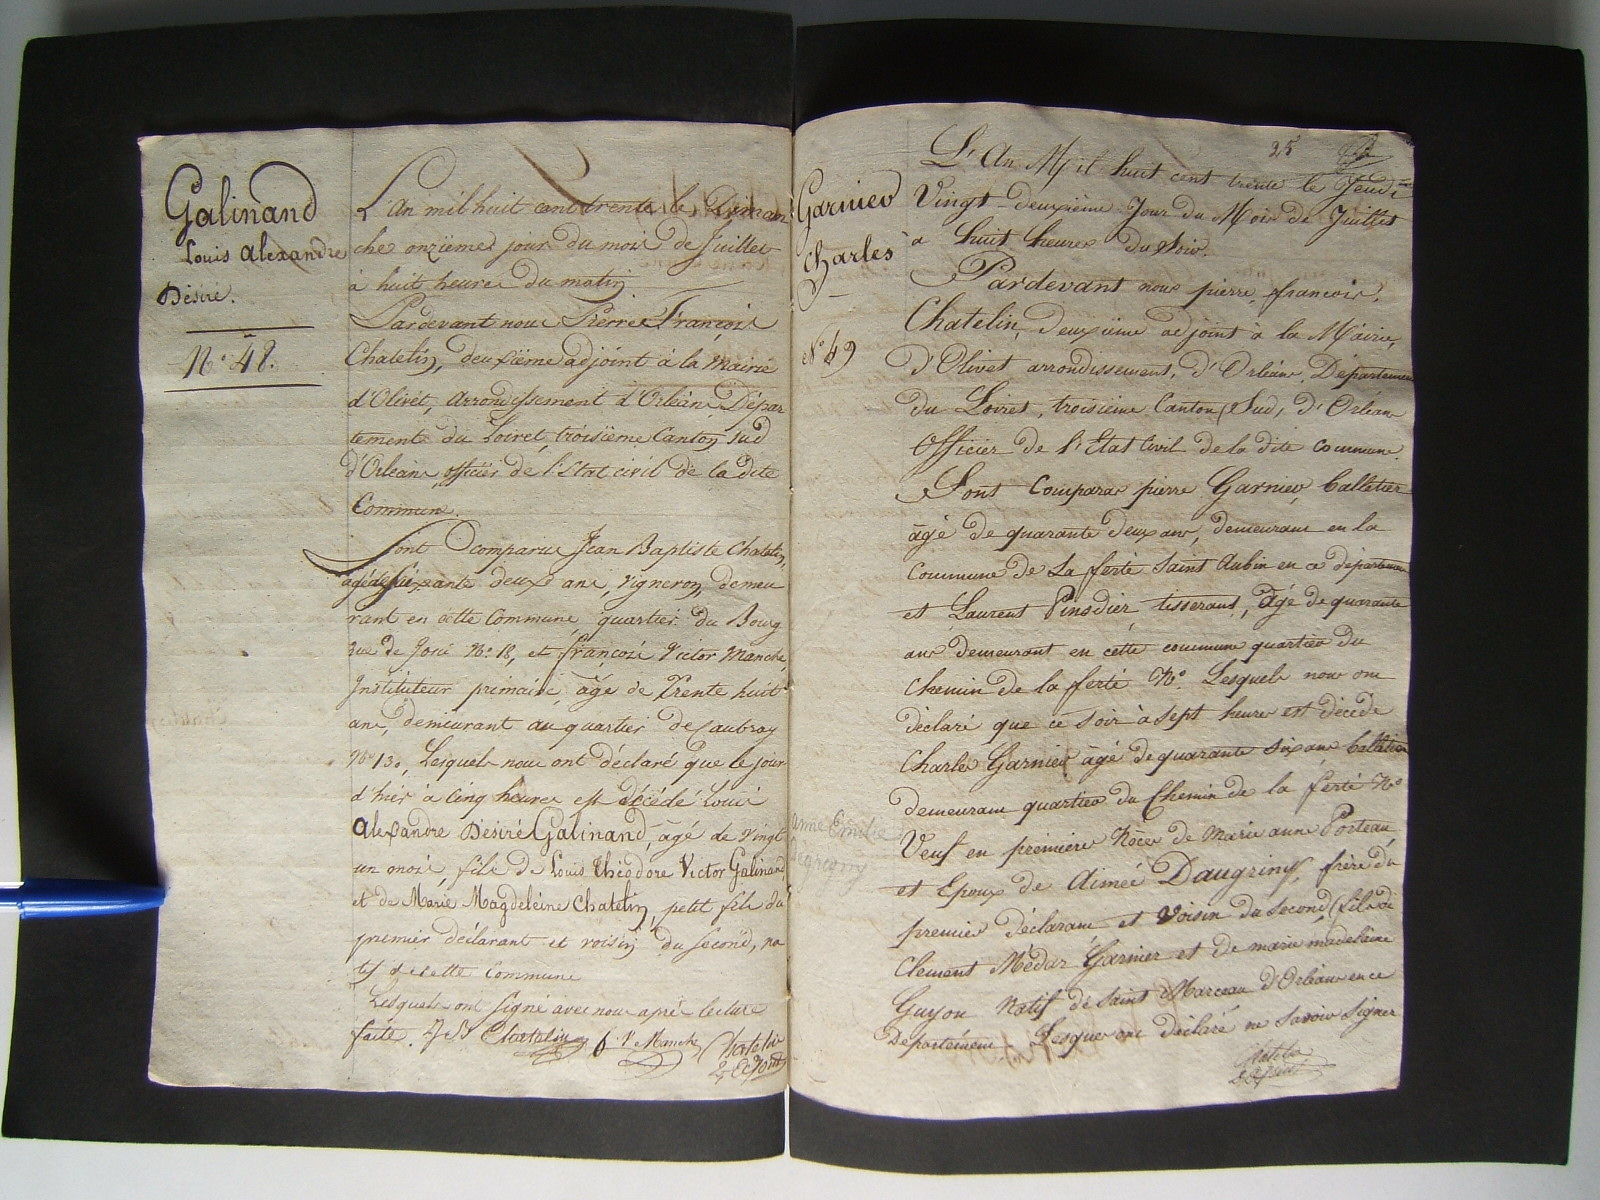 Galinand
Louis Alexandre
Désiré.
N.º 48.
L'An mil huit cent trente le Diman
che onzième jour du mois de Juillet
à huit heures du matin
Pardevant nous Pierre François
Chatelin, deuxième adjoint à la Mairie
d'Olivet, Arrondissement d'Orléans, Dépar
tement du Loiret, troisième Canton Sud
d'Orléans, officier de l'Etat civil de la dite
Commune.
Sont comparus Jean Baptiste Chatelin,
agé de soixante deux ans, vigneron, demeu
rant en cette Commune quartier du Bourg
rue de N.º 18, et François Victor Manche,
Instituteur primaire, âgé de Trente huit
ans, demeurant au quartier de Caubray
N.º 130, Lesquels nous ont déclaré que le jour
d'hier à Cinq heures est décédé Louis
Alexandre Désiré Galinand, âgé de vingt
un mois, fils de Louis Théodore Victor Galinand
et de Marie Magdeleine Chatelin, petit fils du
premier déclarant et voisin du second, na
tif de cette Commune
Lesquels ont signé avec nous après lecture
faite. J B Chatelin f. V. Manche Chatelin
2e Adjoint
25
Garnier
Charles
N.º 49
L'An Mil huit cent trente le Jeudi
Vingt-deuxième Jour du Mois de Juillet
à huit heures du soir.
Pardevant nous pierre, françois,
Chatelin, deuxième adjoint à la Mairie,
d'Olivet arrondissement, d'Orléans, Département
du Loiret, troisième Canton, Sud, d'Orléans
Officier de l'Etat Civil de la dite commune.
Sont Comparus pierre Garnier Calletier
âgé de quarante deux ans, demeurant en la
Commune de La ferté Saint Aubin en ce département
et Laurent Pinsdier, tisserant, âgé de quarante
ans demeurant en cette commune quartier du
Chemin de la ferté N.º Lesquels nous ont
déclaré que ce soir à sept heures est décédé
Charles Garnier âgé de quarante six ans Calletier
demeurant quartier du Chemin de la ferté N.º
Veuf en première Nôces de Marie anne Porteau
et Epoux de Aimée Daugriny, frère du
premier déclarant et Voisin du second, fils de
Clement Médar Garnier et de marie madelaine
Guyon Natif de Saint Marceau d'Orléans en ce
Département Lesques ont déclaré ne savoir signer
Chatelin
2e Adjoint
Anne Emilie